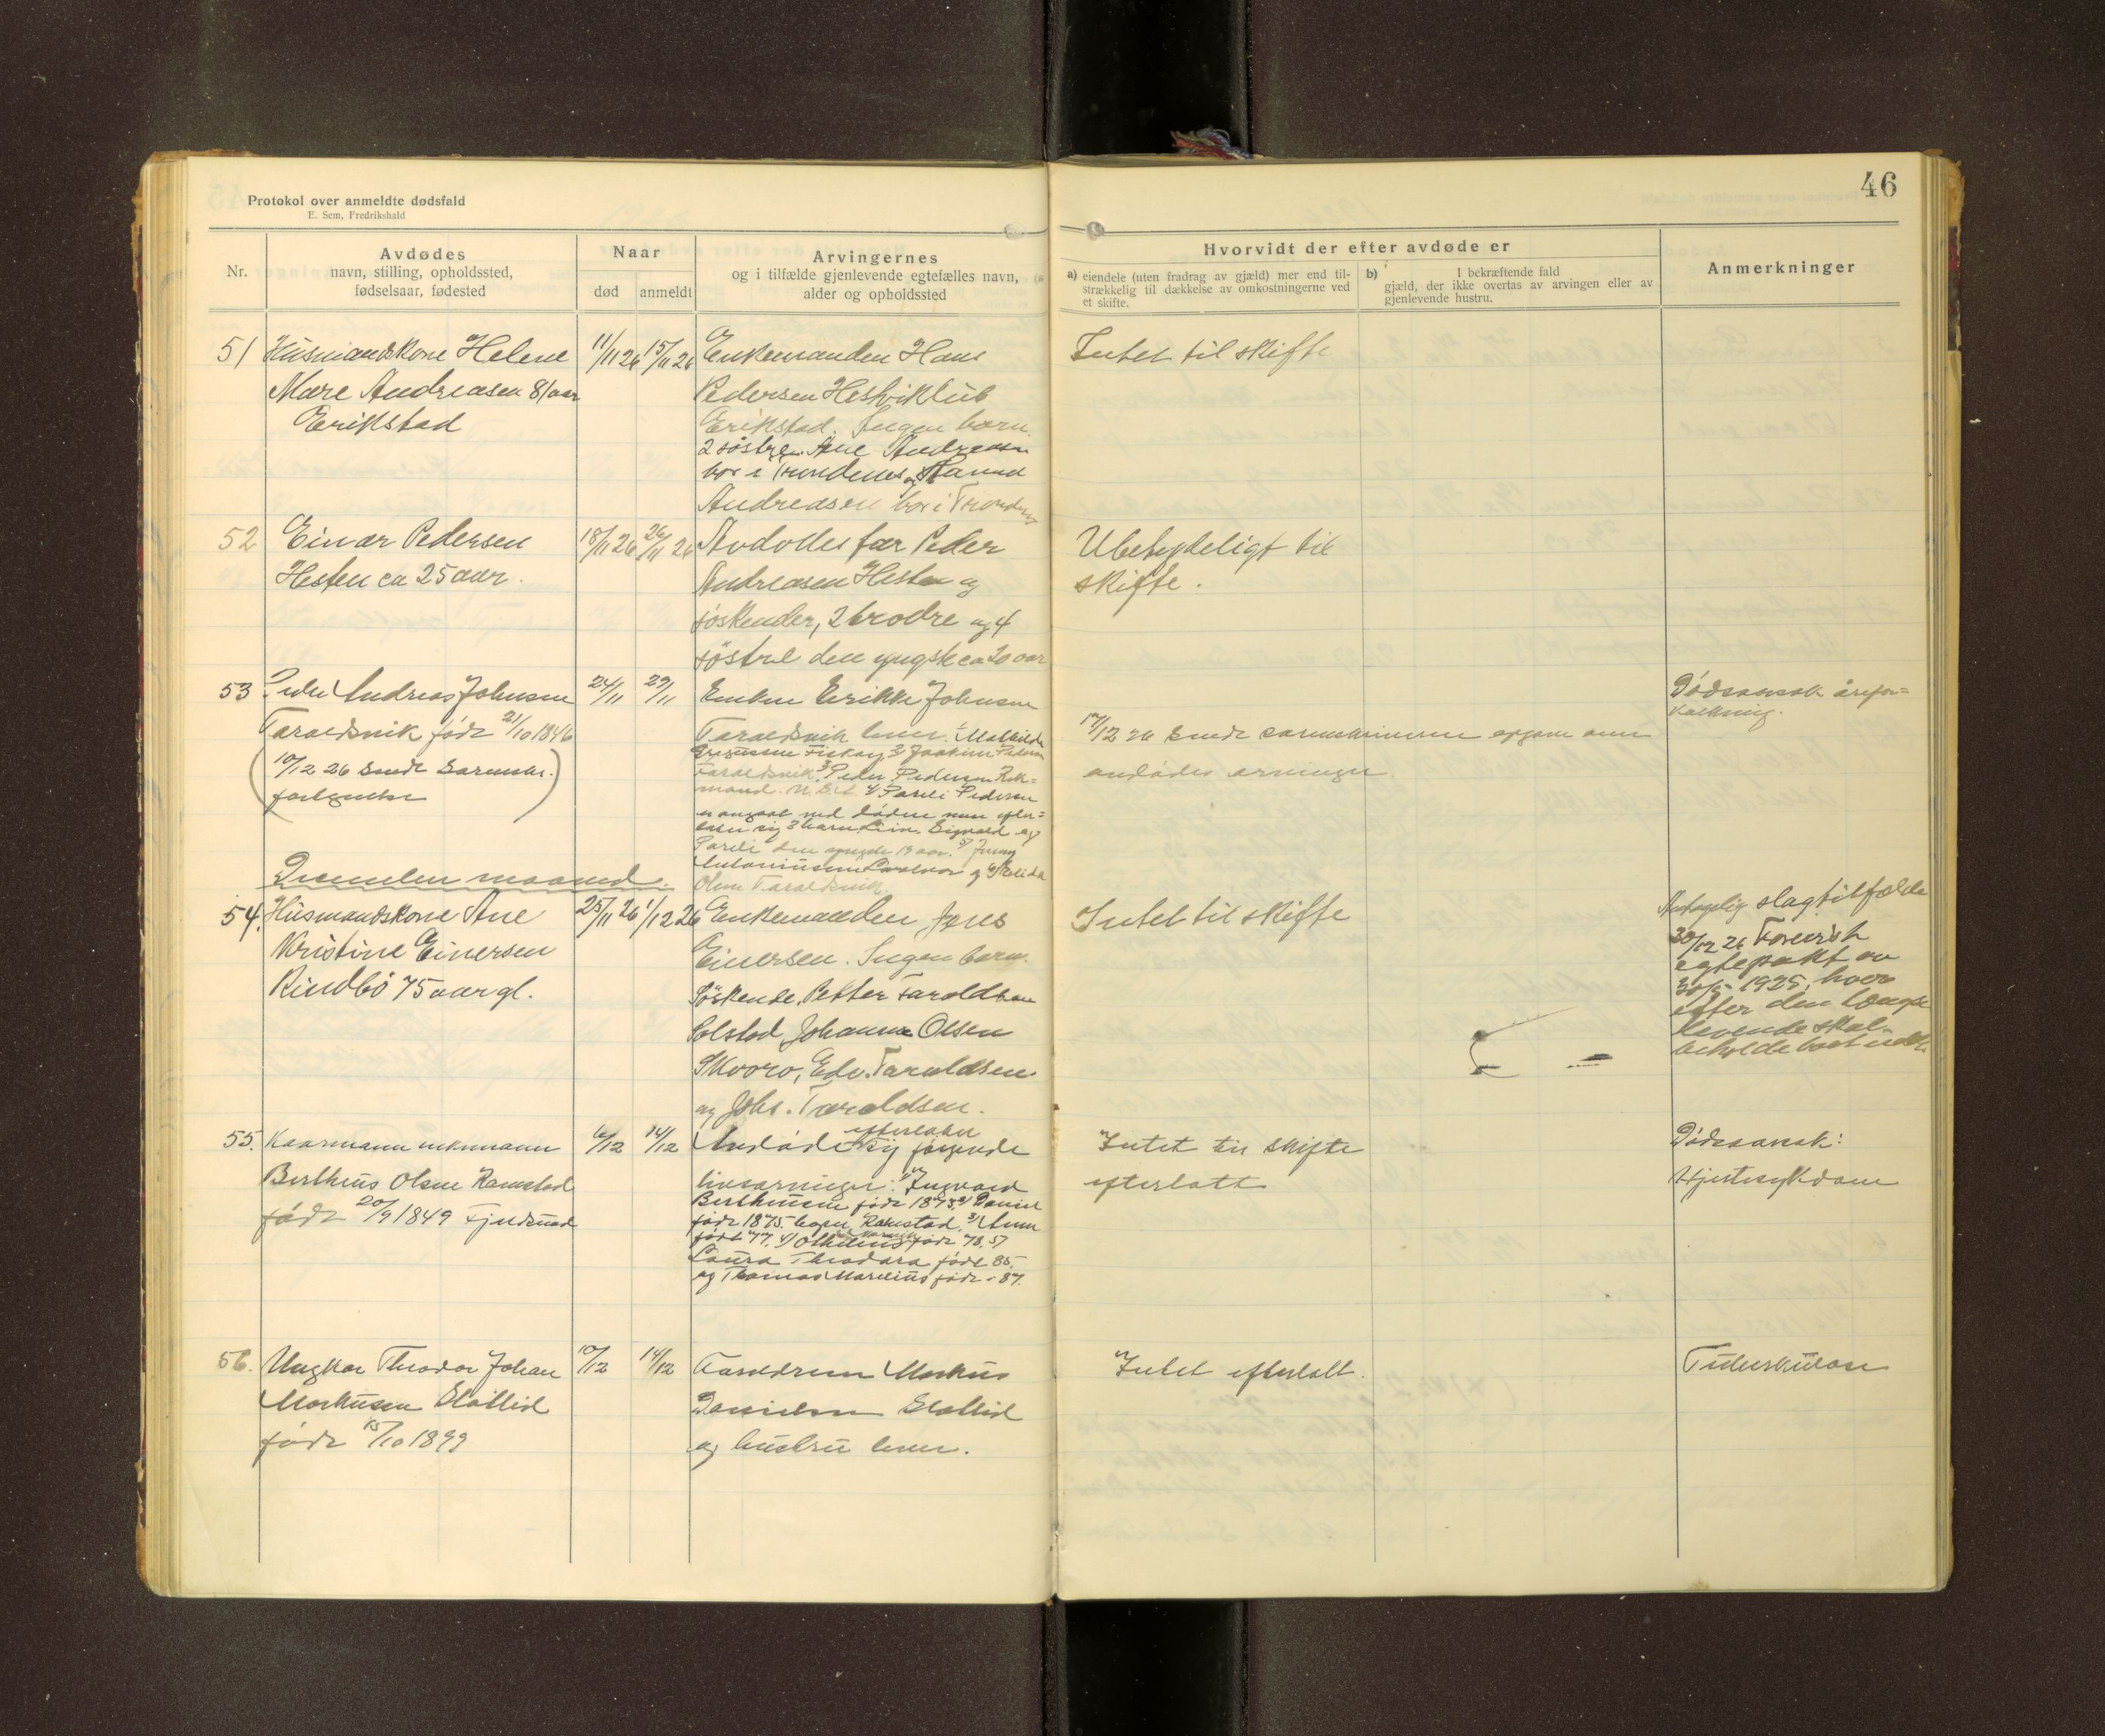 46
Protokol over anmeldte dødsfald
E. Sem, Fredrikshald
Nr.
Avdødes
navn, stilling, opholdssted,
fødselsaar, fødested
Naar
død
anmeldt
Arvingernes
og i tilfælde gjenlevende egtefælles navn,
alder og opholdssted
Hvorvidt der efter avdøde er
a) eiendele (uten fradrag av gjæld) mer end til-
strækkelig til dækkelse av omkostningerne ved
et skifte.
b) I bekræftende fald
gjæld, der ikke overtas av arvingen eller av
gjenlevende hustru.
Anmerkninger
51
Husmandskone Helene
Mare Andreasen 81 aar
Erikstad
11/11 26
15/11 26
Enkemanden Hans
Pedersen
Erikstad. Ingen barn
2 søstre. Ane Andreasen
bor i Trondenes og
Andreasen bor i Trondenes
Intet til skifte
52
Einar Pedersen
Hesten ca 25 aar.
18/11 26
26/11 26
Avdødes far Peder
Andreasen Hesten og
søskender, 2 brodre og 4
søstre den yngste ca 20 aar
Ubetydeligt til
skifte.
53
Peder Andreas Johnsen
Taraldsvik født 21/10 1846
(10/12 26 sendt
24/11
29/11
Enken Erikke Johnsen
Taraldsvik lever. 1/ Mathilde
Fiskøy, 2/ Joakim Pedersen
Taraldsvik, 3/ Peder Pedersen
4/ Pareli Pedersen
er omgaat ved døden men efter=
later sig 3 barn Sigvald og
Pareli den yngste 19 aar. 5/ Jenny
og 6/
Olsen Taraldsvik.
17/12 26 sendt opgave over
avdødes arvinger.
Dødsaarsak årefor=
kalkning.
December maaned.
54.
Husmandskone Ane
Kristine Einersen
Rindbø 75 aar gl.
25/11 26
1/12 26
Enkemanden Jens
Einersen. Ingen barn.
Søskende. Petter Taraldsen
Solstad, Johanna Olsen
Skooro, Edv. Taraldsen
og Johs. Taraldsen.
Intet til skifte
Antagelig slagtilfælde
30/12 26 Forevist
egtepakt av
30/5 1925, hvor
efter den længst
levende skal
beholde boet
55.
Kaarmann enkemann
Bertheus Olsen Ramstad
født 20/9 1849
6/12
14/12
efterlater
Avdøde sig følgende
livsarvinger: 1/ Ingvald
Bertheusen født 1873, 2/ Daniel
født 1875 begge Ramstad. 3/ Anna
født 77. 4/ født 78. 5/
Laura Theodora født 85.
og Thomas Marelius født - 87.
Intet til skifte
efterlatt
Dødsaarsak:
Hjertesykdom
56.
Ungkar Theodor Johan
Markusen
født 15/10 1899
10/12
14/12
Forældrene Markus
Danielsen
og hustru lever.
Intet efterlatt.
Tuberkulose